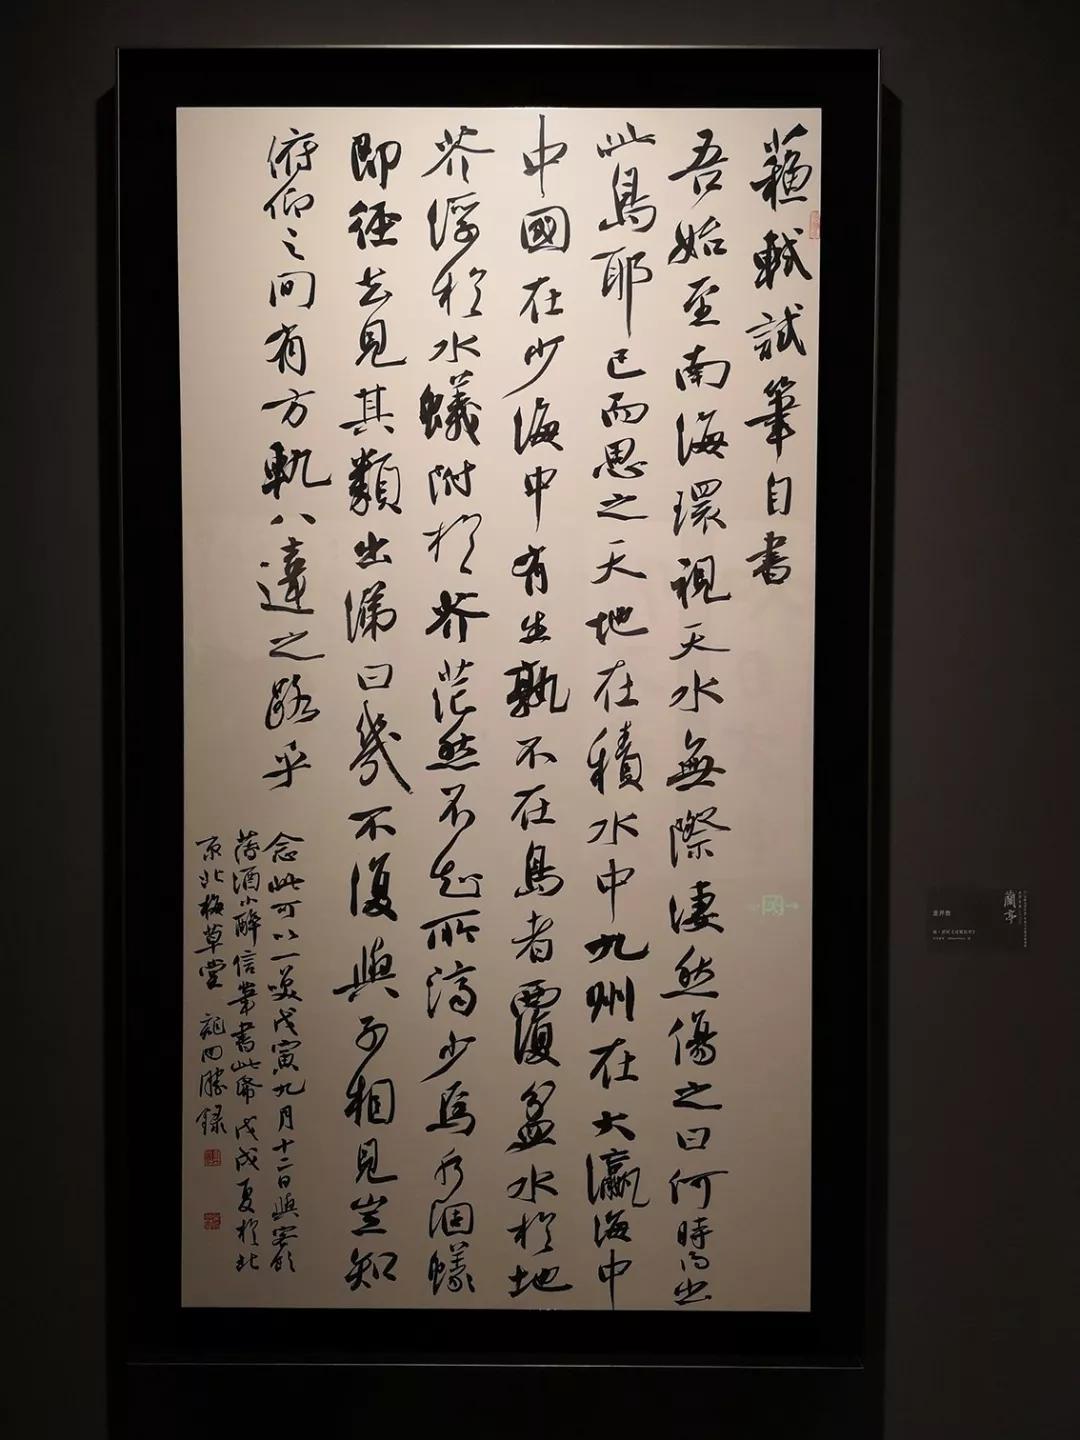 蘓軾試筆自書
吾始至南海環視天水無際淒然傷之曰何時得出
此島耶已而思之天地在積水中九州在大瀛海中
中國在少海中有生孰不在島者覆盆水於地
芥浮於水蟻附於芥茫然不知所濟少焉水涸蟻
即徑去見其類出涕曰幾不復與子相見豈知
俯仰之間有方軌八達之路乎
念此可以一笑戊寅九月十二日與客飲
薄酒小醉信筆書此帋 戊戌夏於北
京北梅草堂 龍開勝錄
蘭亭
國